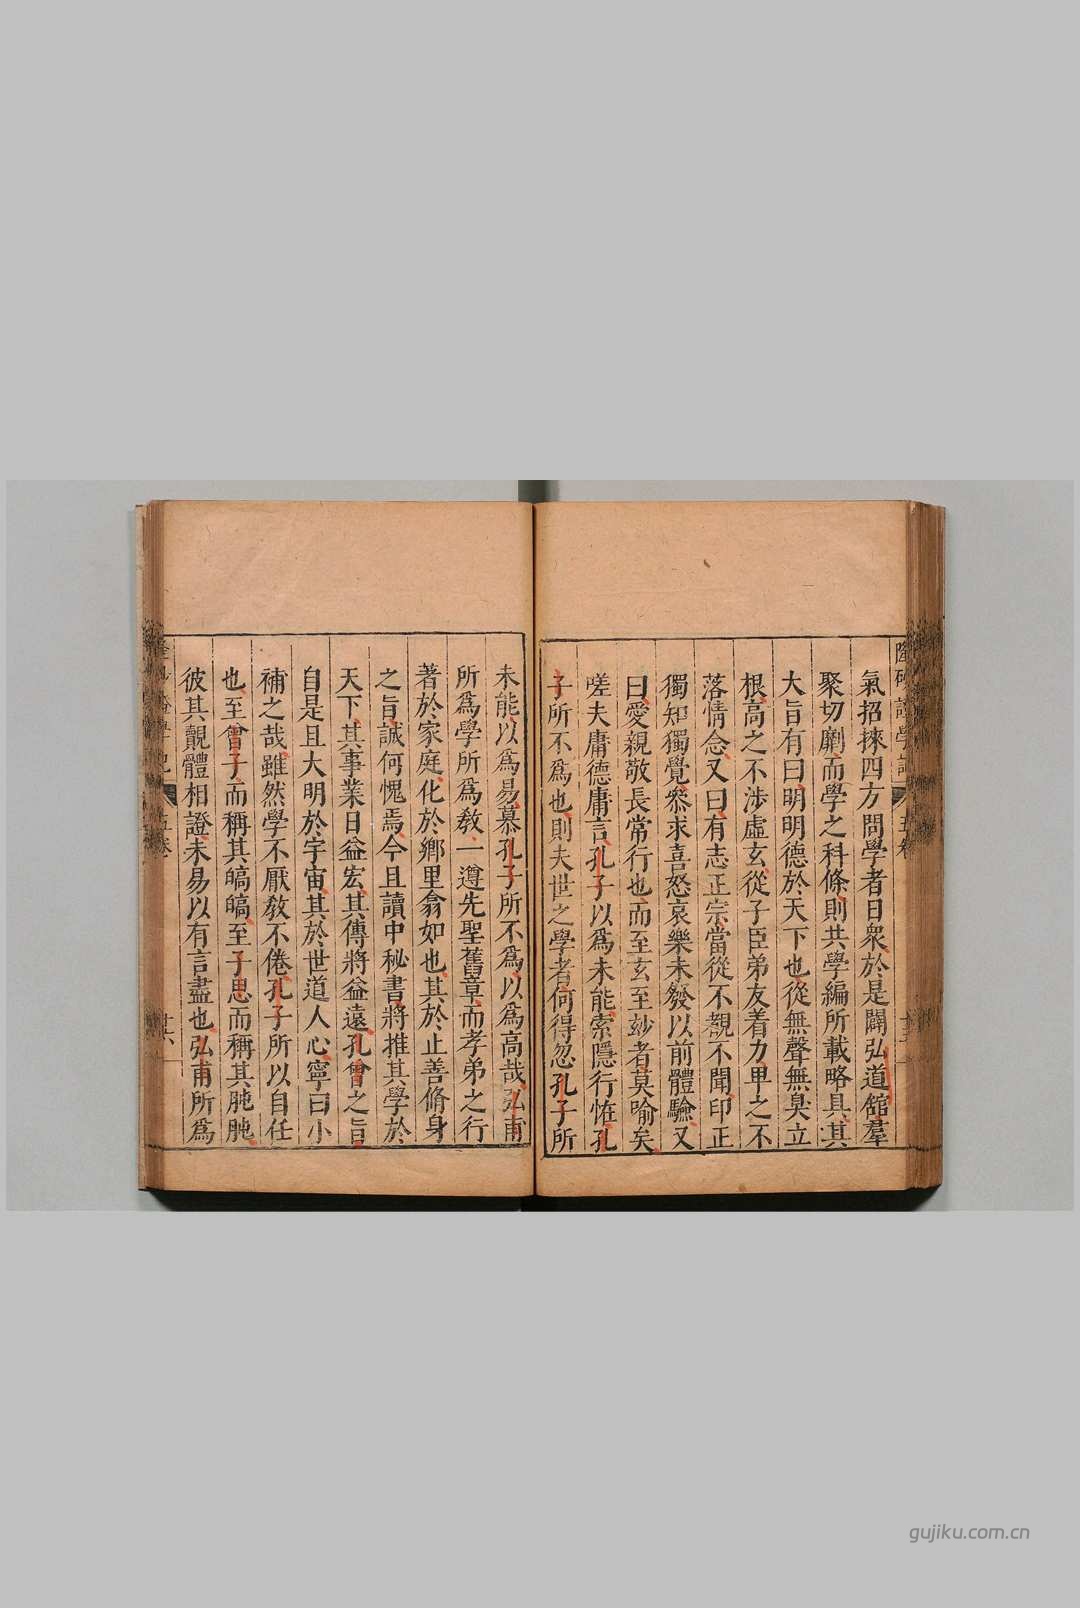 氣招揀四方問學者日衆於是闢弘道舘羣
聚切劘而學之科條則共學編所載略具其
大旨有曰明明德於天下也從無聲無臭立
根高之不涉虛玄從子臣弟友着力卑之不
落情念又曰有志正宗當從不覩不聞印正
獨知獨覺叅求喜怒哀樂未發以前體驗又
曰愛親敬長常行也而至玄至玅者莫喻矣
嗟夫庸德庸言孔子以爲未能索隱行恠孔
子所不爲也則夫世之學者何得忽孔子所
未能以爲易慕孔子所不爲以爲高哉弘甫
所爲學所爲敎一遵先聖舊章而孝弟之行
著於家庭化於鄉里翕如也其於止善脩身
之旨誠何愧焉今且讀中秘書將推其學於
天下其事業日益宏其傳將益遠孔曾之旨
自是且大明於宇宙其於世道人心寧曰小
補之哉雖然學不厭敎不倦孔子所以自任
也至曾子而稱其皜皜至子思而稱其肫肫
彼其覿體相證未易以有言盡也弘甫所爲
五卷
十六
gujiku.com.cn